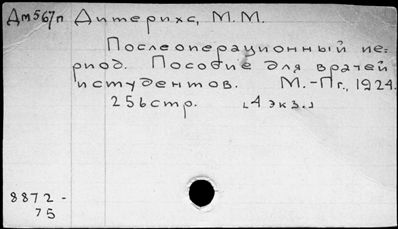 Дм567п Дитерихс, М.М.
Послеоперационный пе-
риод. Пособие для врачей
и студентов. М.-Пг., 1924.
256стр. [4 экз.]
8872-
75